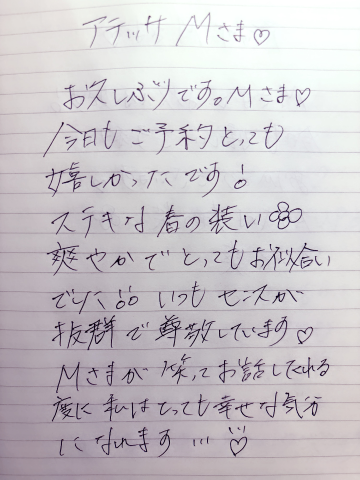 アテッサ Mさま♡
お久しぶりです。Mさま♡
今日もご予約とっても
嬉しかったです!
ステキな春の装い
爽やかでとってもお似合い
でした!! いつもセンスが
抜群で尊敬しています♡
Mさまが笑ってお話してくれる
度に私はとっても幸せな気分
になれます…♡